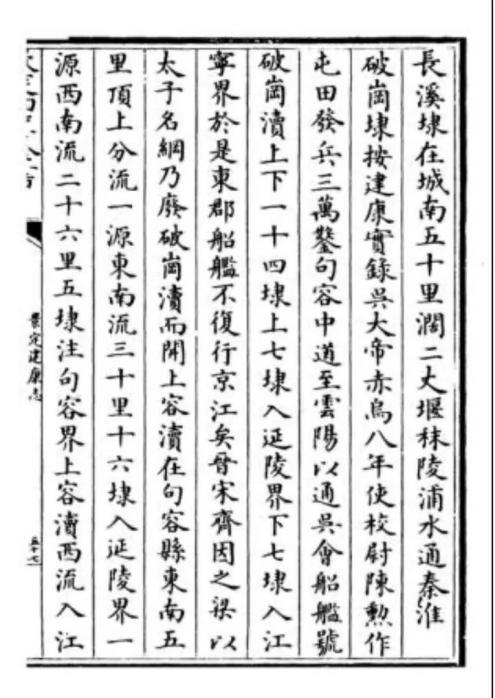 長溪埭在城南五十里濶二丈堰秣陵浦水通秦淮
破崗埭按建康實錄吳大帝赤烏八年使校尉陳勲作
屯田發兵三萬鑿句容中道至雲陽以通吳會船艦號
破崗瀆上下一十四埭上七埭入延陵界下七埭入江
寧界於是東郡船艦不復行京江矣晉宋齊因之梁以
太子名綱乃廢破崗瀆而開上容瀆在句容縣東南五
里頂上分流一源東南流三十里十六埭入延陵界一
源西南流二十六里五埭注句容界上容瀆西流入江
景定建康志